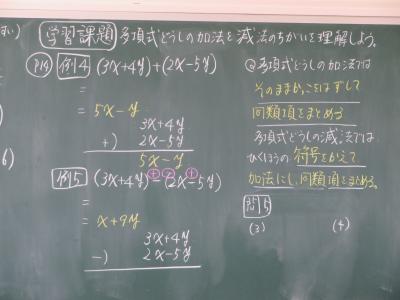 学習課題 多項式どうしの加法と減法のちがいを理解しよう。
P14 例4 (3x+4y)+(2x-5y)
=
= 5x-y
3x+4y
+) 2x-5y
5x-y
例5 (3x+4y)-(2x-5y)
+ - +
=
= x+9y
3x+4y
-) 2x-5y
◎多項式どうしの加法では
そのままかっこをはずして
同類項をまとめる
多項式どうしの減法では
ひくほうの符号をかえて、
加法にし、同類項をまとめる。
問5
(3) (4)
い)
)
6)